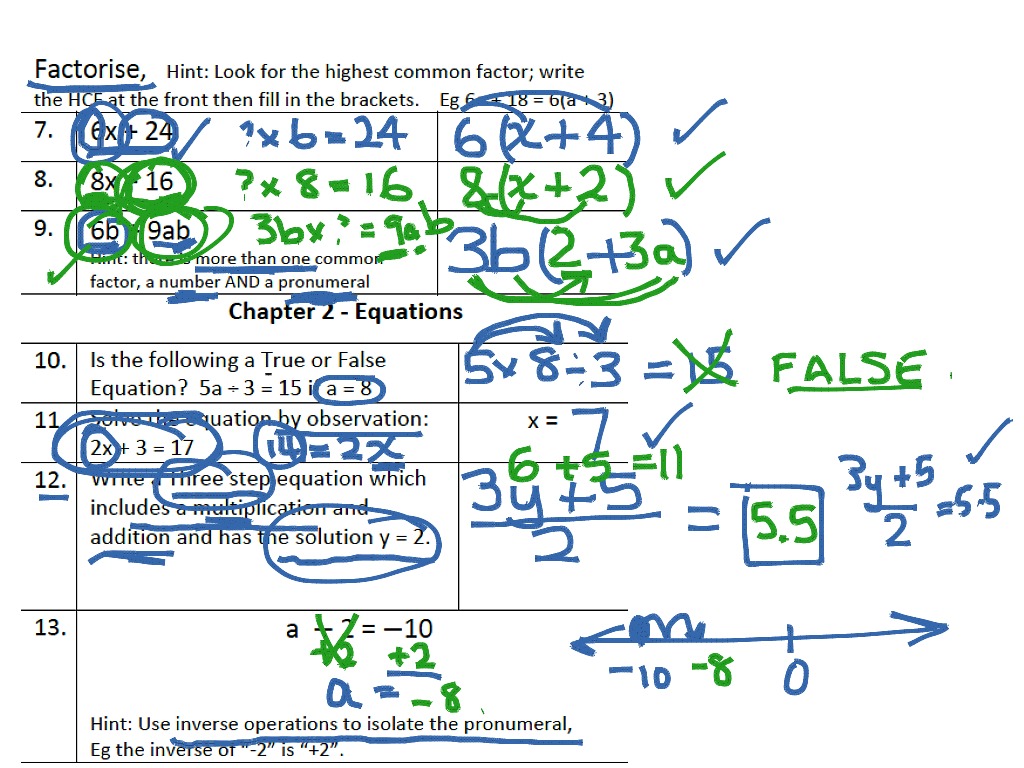 Factorise, Hint: Look for the highest common factor; write
the HCF at the front then fill in the brackets. Eg 6a + 18 = 6(a + 3)
7. 6x + 24 ? x 6 = 24 6(x+4)
8. 8x + 16 ? x 8 = 16 8(x+2)
9. 6b + 9ab 3b x ? = 9ab 3b(2+3a)
Hint: there is more than one common
factor, a number AND a pronumeral
Chapter 2 - Equations
10. Is the following a True or False 5 x 8 ÷ 3 = 15 FALSE
Equation? 5a ÷ 3 = 15 if a = 8
11. Solve the equation by observation: x = 7
2x + 3 = 17 14 = 2x
6 + 5 = 11
12. Write a Three step equation which 3y + 5 3y + 5
includes a multiplication and = 5.5 = 5.5
addition and has the solution y = 2. 2 2
13. a - 2 = −10
+2 +2 -10 -8 0
a = -8
Hint: Use inverse operations to isolate the pronumeral,
Eg the inverse of "-2" is "+2".